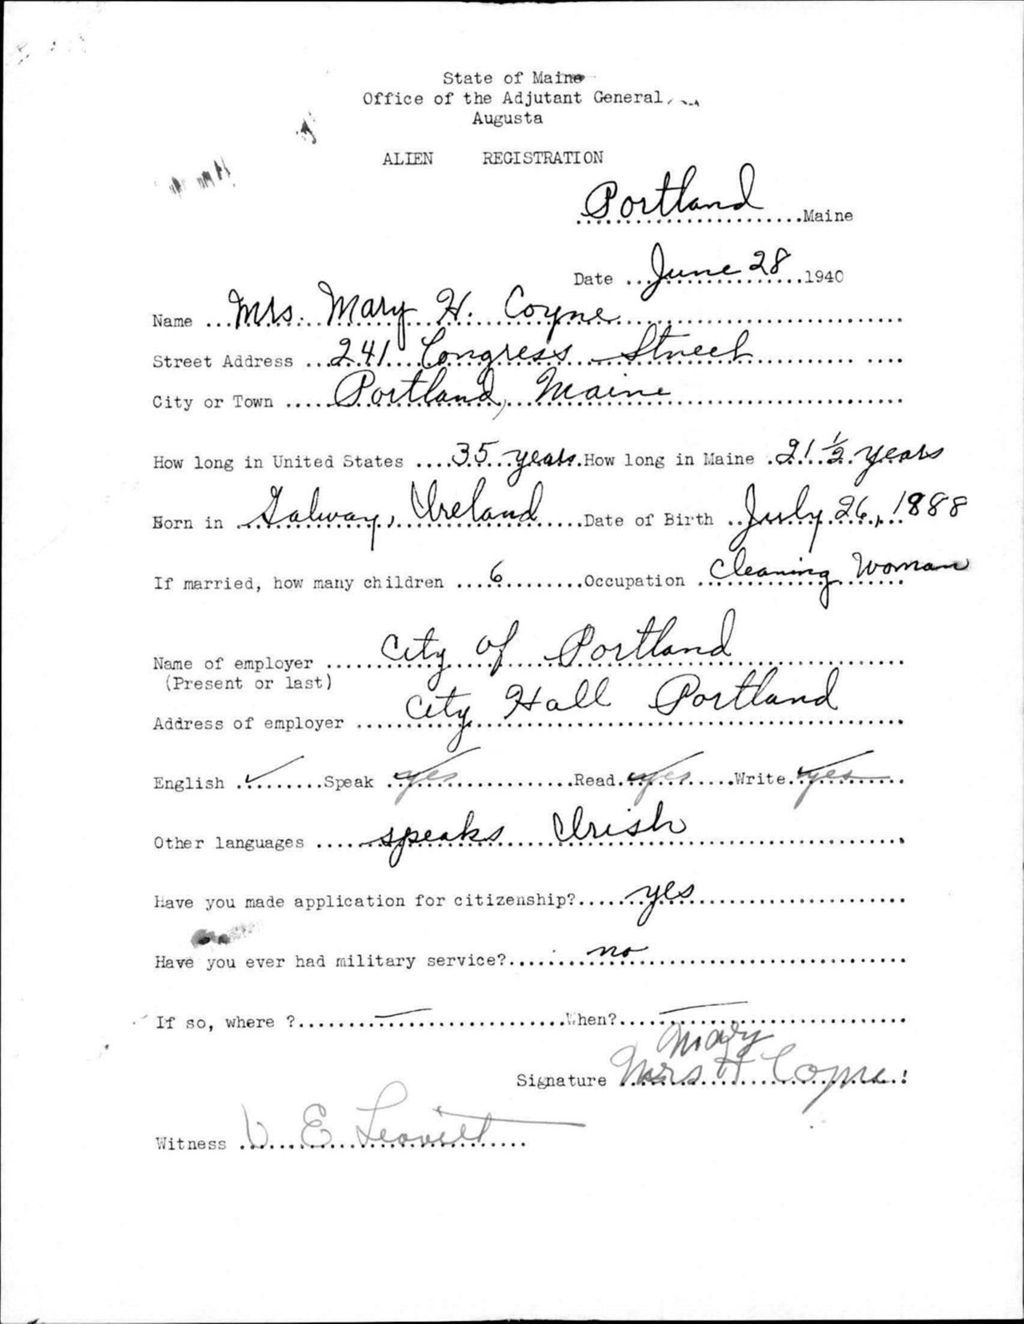 State of Maine
Office of the Adjutant General
Augusta
ALIEN REGISTRATION
Portland Maine
Date June 28 1940
Name Mrs. Mary H. Coyne
Street Address 241 Congress Street
City or Town Portland, Maine
How long in United States 35 years How long in Maine 21 1/2 years
Born in Galway, Ireland Date of Birth July 26, 1888
If married, how many children 6 Occupation Cleaning Woman
Name of employer City of Portland
(Present or last)
Address of employer City Hall Portland
English ✓ Speak yes Read yes Write yes
Other languages speaks Irish
Have you made application for citizenship? yes
Have you ever had military service? no
If so, where ? — When? —
Mary
Signature Mrs H Coyne
Witness W E Leavitt